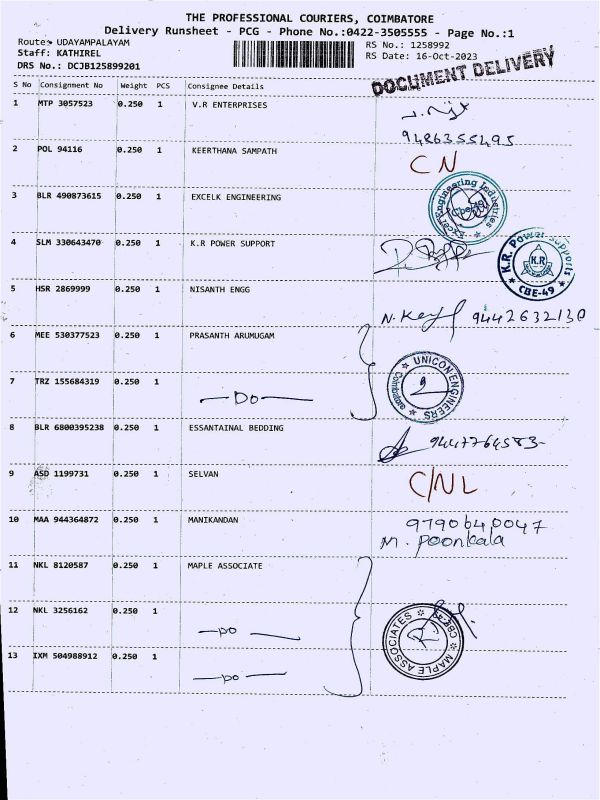 THE PROFESSIONAL COURIERS, COIMBATORE
Delivery Runsheet - PCG - Phone No.:0422-3505555 - Page No.:1
Route: UDAYAMPALAYAM
RS No.: 1258992
Staff: KATHIREL
RS Date: 16-Oct-2023
DRS No.: DCJB125899201
DOCUMENT DELIVERY
S No Consignment No Weight PCS Consignee Details
1 MTP 3057523 0.250 1 V.R ENTERPRISES
9486355495
2 POL 94116 0.250 1 KEERTHANA SAMPATH
CN
3 BLR 490873615 0.250 1 EXCELK ENGINEERING
Excel Engineering Industries
4 SLM 330643470 0.250 1 K.R POWER SUPPORT
K.R. Power Supports
K.R
CBE-49
5 HSR 2869999 0.250 1 NISANTH ENGG
9442632130
6 MEE 530377523 0.250 1 PRASANTH ARUMUGAM
UNICON ENGINEERS
Coimbatore
7 TRZ 155684319 0.250 1 —Do—
8 BLR 6800395238 0.250 1 ESSANTAINAL BEDDING
9447764583-
9 ASD 1199731 0.250 1 SELVAN
C/NL
10 MAA 944364872 0.250 1 MANIKANDAN
9790640047
M. poonkala
11 NKL 8120587 0.250 1 MAPLE ASSOCIATE
12 NKL 3256162 0.250 1 —DO—
MAPLE ASSOCIATES
13 IXM 504988912 0.250 1 —DO—